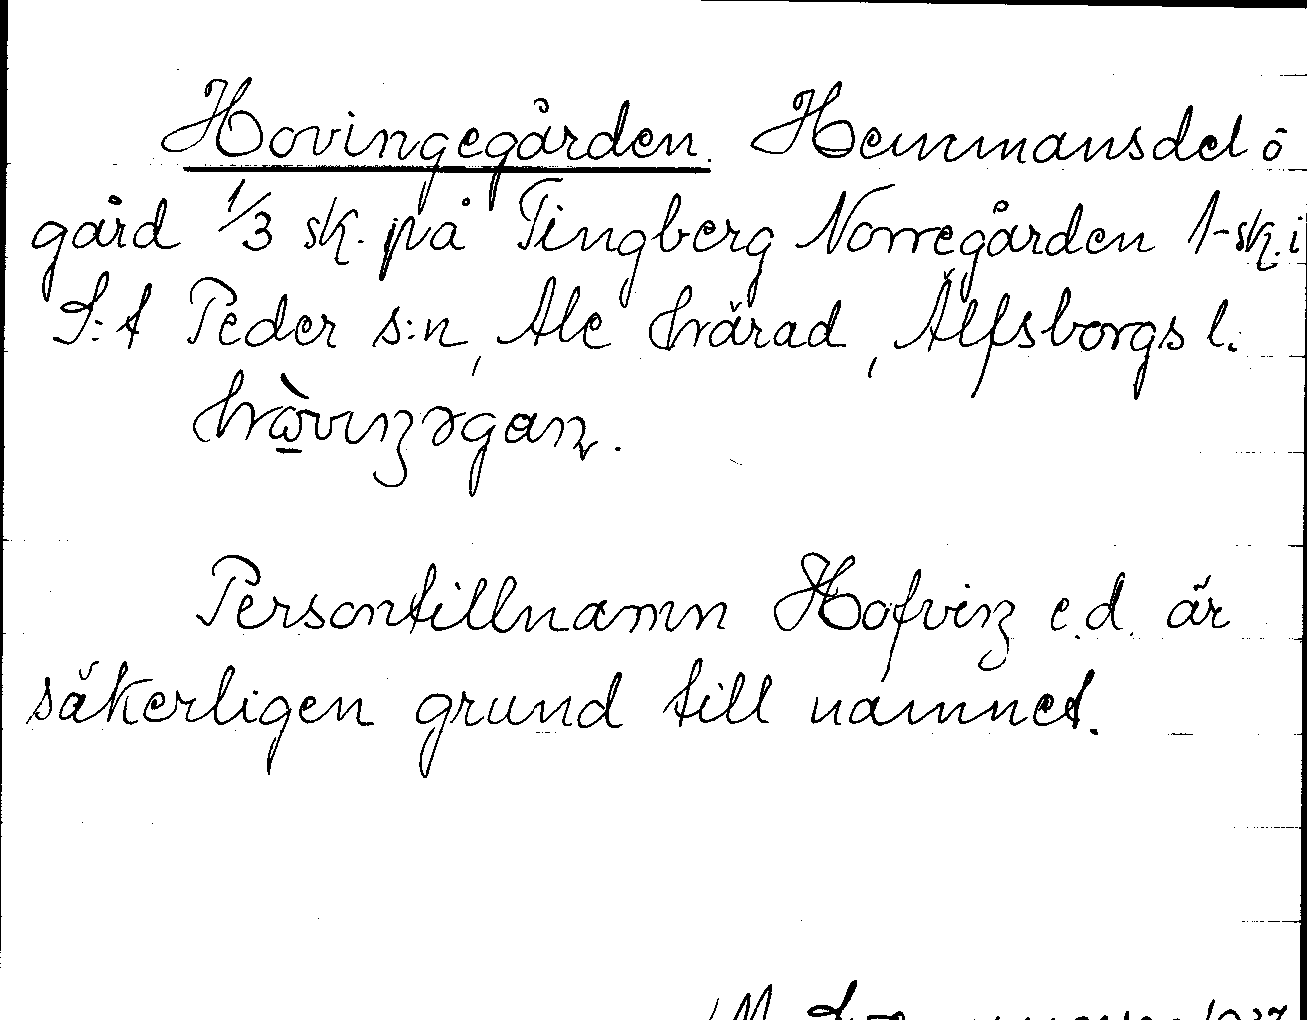 Hovingegården. Hemmansdel ō
gård 1/3 sk. på Tingberg Norregården 1-sk. i
S:t Peder s:n, Ale härad, Älfsborgs l.
Persontillnamn Hofving e.d. är
säkerligen grund till namnet.